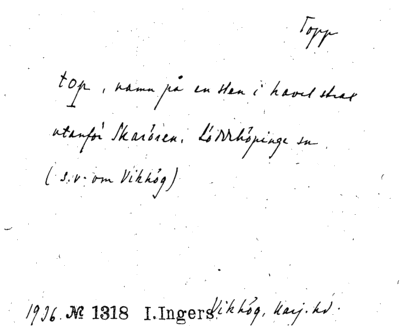 Topp
top, namn på en sten i havet strax
utanför Skarösen. Löddeköpinge sn.
(s.v. om Vikhög)
1936. № 1318 I.Ingers Vikhög, Harj. hd.